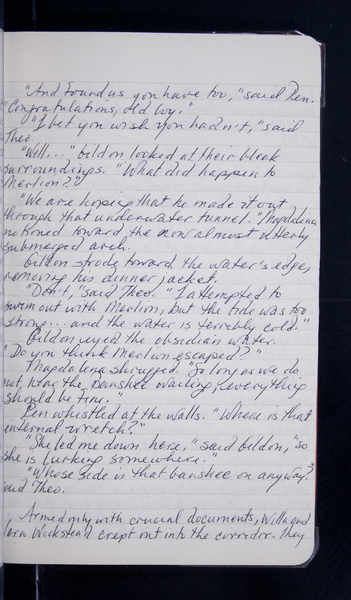 "And found us you have too," said Pen.
"Congratulations, old boy."
"I bet you wish you hadn't," said
Theo.
"Well..." Gildon looked at their bleak
surroundings. "What did happen to
Merlion?"
"We are hoping that he made it out
through that underwater tunnel." Magdalena
motioned toward the now almost utterly
submerged arch.
Gildon strode toward the water's edge,
removing his dinner jacket.
"Don't," said Theo. "I attempted to
swim out with Merlion, but the tide was too
strong... and the water is terribly cold."
Gildon eyed the obsidian water.
"Do you think Merlion escaped?"
Magdalena shrugged. "So long as we do
not hear the banshee wailing, everything
should be fine."
Pen whistled at the walls. "Where is that
infernal wretch?"
"She led me down here," said Gildon, "so
she is lurking somewhere."
"Whose side is that banshee on anyway?"
said Theo.
Armed only with crucial documents, Willa and
Wickstead crept out into the corridor. They